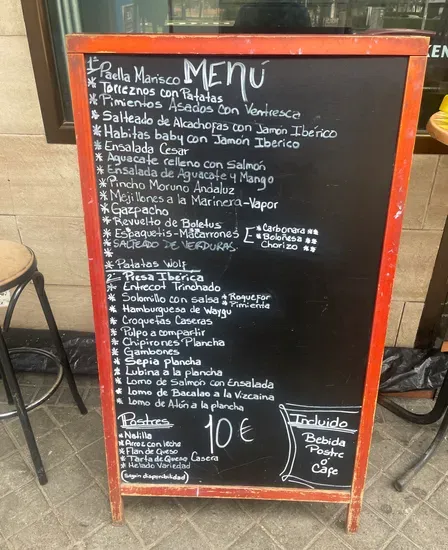 MENÚ
1º Paella Marisco
* Torreznos con Patatas
* Pimientos Asados con Ventresca
* Salteado de Alcachofas con Jamón Ibérico
* Habitas baby con Jamón Iberico
* Ensalada Cesar
* Aguacate relleno con Salmón
* Ensalada de Aguacate y Mango
* Pincho Moruno Andaluz
* Mejillones a la Marinera-Vapor
* Gazpacho
* Revuelto de Boletus
* Espaguetis-Macarrones [ * Carbonara **
* Boloñesa **
Chorizo **
* SALTEADO DE VERDURAS
*
* Patatas Wolf
2º Presa Iberica
* Entrecot Trinchado
* Solomillo con salsa * Roquefor
* Pimienta
* Hamburguesa de Waygu
* Croquetas Caseras
* Pulpo a compartir
* Chipirones Plancha
* Gambones
* Sepia plancha
* Lubina a la plancha
* Lomo de Salmón con Ensalada
* Lomo de Bacalao a la Vizcaina
* Lomo de Atún a la plancha
Postres
* Natilla
* Arroz con leche
* Flan de Queso
* Tarta de Queso Casera
* Helado Variedad
(Según disponibilidad)
10€
Incluido
Bebida
Postre
ó
Cafe